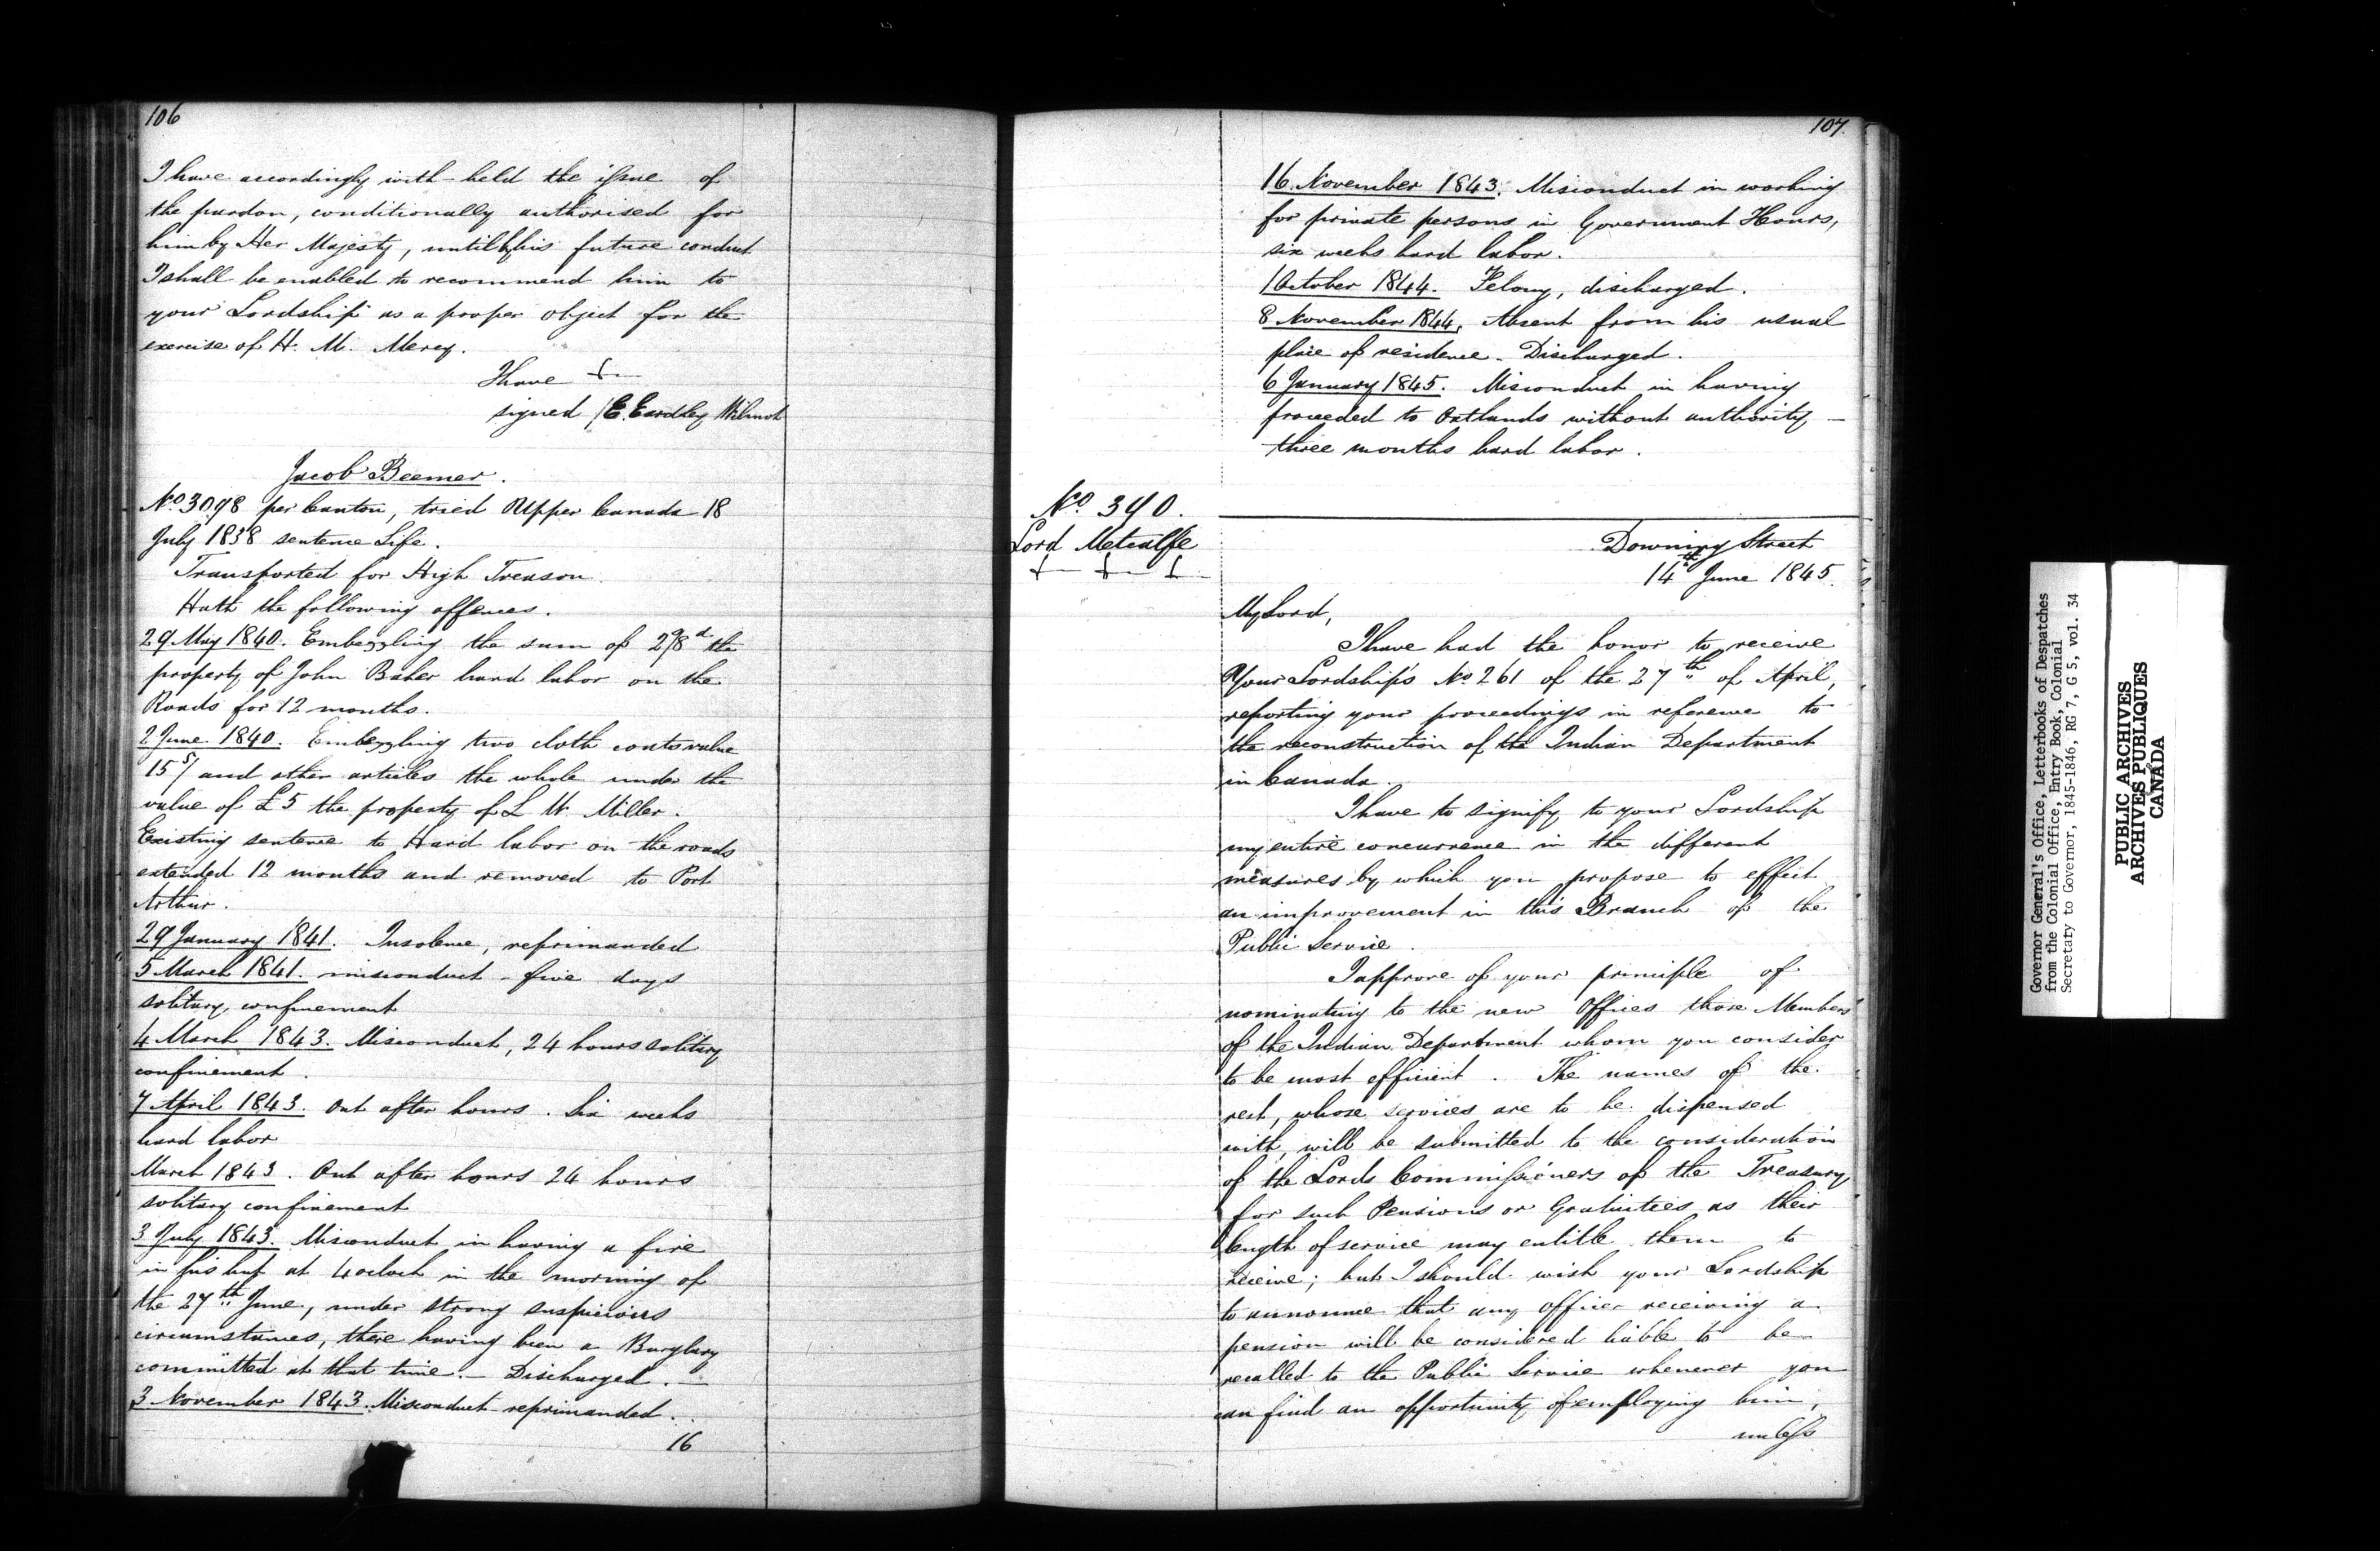 106
I have accordingly with-held the issue of
the pardon, conditionally authorised for
him by Her Majesty, until by his future conduct
I shall be enabled to recommend him to
your Lordship as a proper object for the
exercise of H. M. Mercy.
I have &c
signed / E. Eardley Wilmot
Jacob Beemer.
No 3098 per Canton, tried Upper Canada 18
July 1838 sentence Life.
Transported for High Treason.
Hath the following offences.
29 May 1840. Embezzling the sum of the
property of John Baker hard labor on the
Roads for 12 months.
2 June 1840. Embezzling two cloth coats value
15s/ and other articles the whole under the
value of £5 the property of L W. Miller.
Existing sentence to Hard labor on the roads
extended 12 months and removed to Port
Arthur.
29 January 1841. Insolence, reprimanded
5 March 1841. misconduct - five days
solitary confinement
4 March 1843. Misconduct, 24 hours solitary
confinement.
7 April 1843. Out after hours. Six weeks
hard labor
March 1843. Out after hours 24 hours
solitary confinement
3 July 1843. Misconduct in having a fire
in his hut at 4 oclock in the morning of
the 27th June, under strong suspicious
circumstances, there having been a Burglary
committed at that time. - Discharged. -
3 November 1843. Misconduct - reprimanded.
16
107.
16. November 1843. Misconduct in working
for private persons in Government Hours,
six weeks hard labor.
1 October 1844. Felony, discharged.
8 November 1844, Absent from his usual
place of residence - Discharged.
6 January 1845. Misconduct in having
proceeded to Oatlands without authority -
three months hard labor.
No 390.
Lord Metcalfe
&c &c &c
Downing Street
14th June 1845.
My Lord,
I have had the honor to receive
Your Lordship's No 261 of the 27th of April,
reporting your proceedings in reference to
the reconstruction of the Indian Department
in Canada.
I have to signify to your Lordship
my entire concurrence in the different
measures by which you propose to effect
an improvement in this Branch of the
Public Service.
I approve of your principle of
nominating to the new Offices those Members
of the Indian Department whom you consider
to be most efficient. The names of the
rest, whose services are to be dispensed
with, will be submitted to the consideration
of the Lords Commissioners of the Treasury
for such Pensions or Gratuities as their
length of service may entitle them to
receive; but I should wish your Lordship
to announce that any officer receiving a
pension will be considered liable to be
recalled to the Public Service whenever you
can find an opportunity of employing him,
unless
Governor General's Office, Letterbooks of Despatches
from the Colonial Office, Entry Book, Colonial
Secretary to Governor, 1845-1846, RG 7, G 5, vol. 34
PUBLIC ARCHIVES
ARCHIVES PUBLIQUES
CANADA